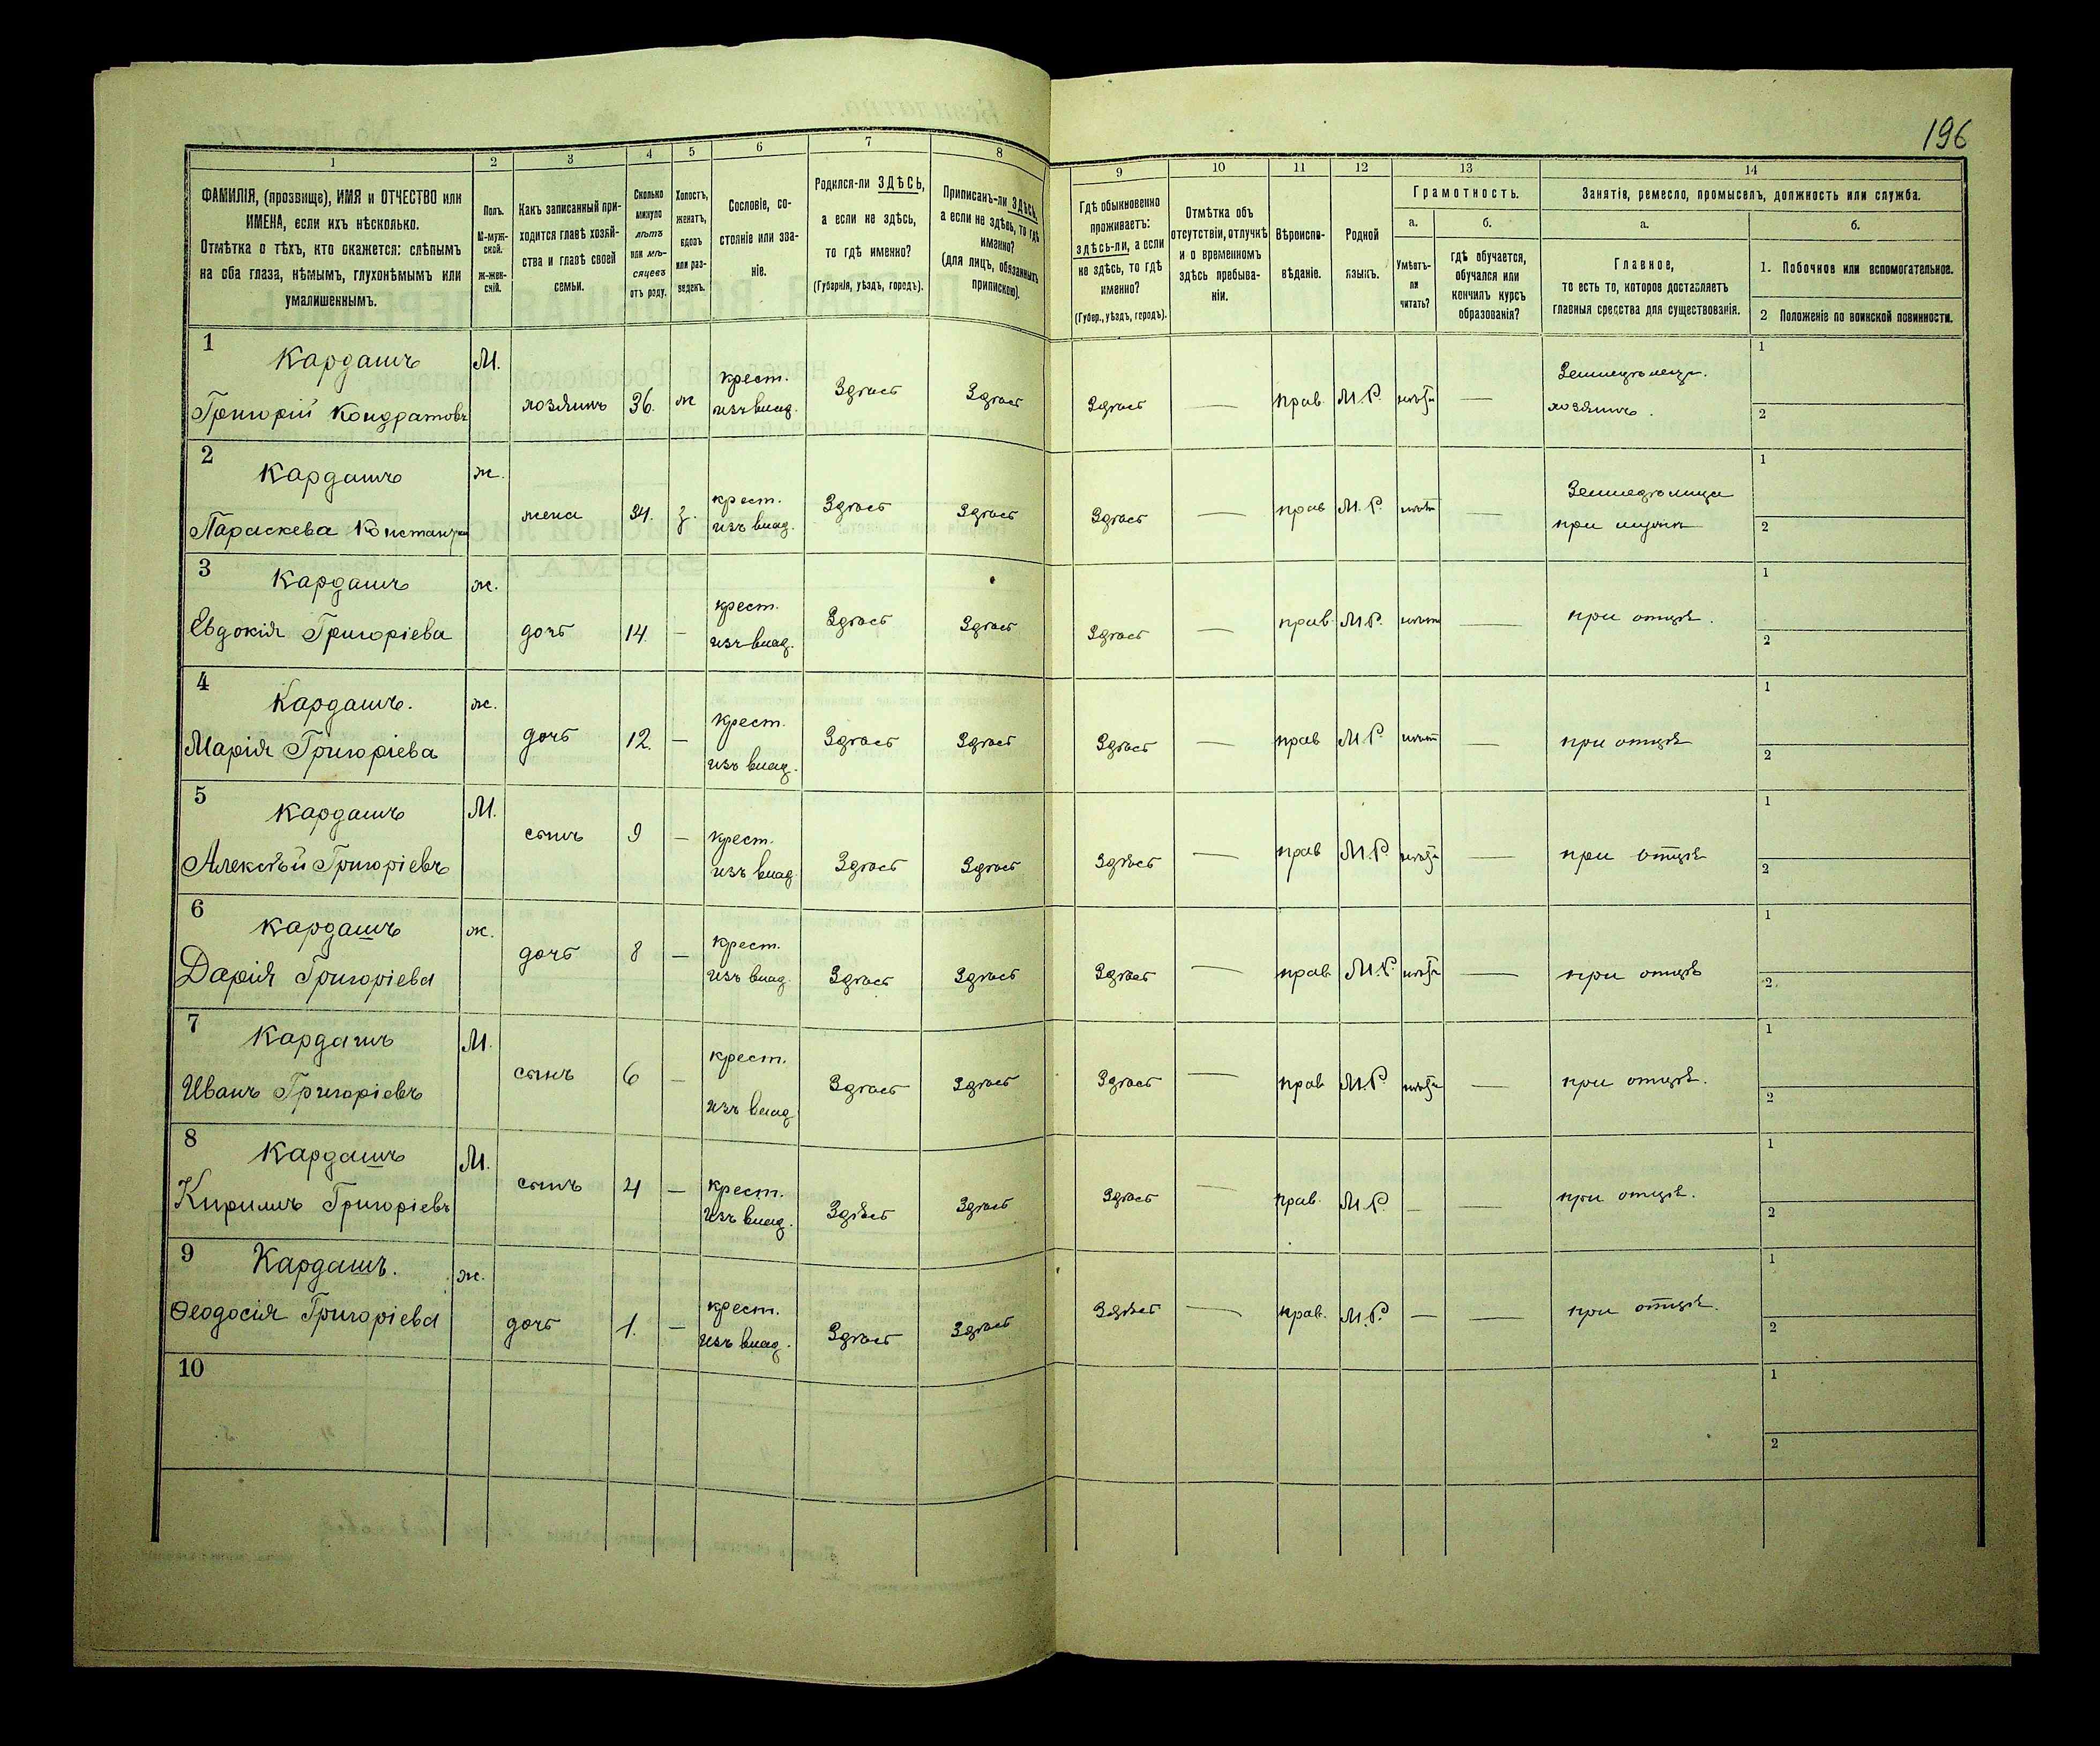 196
1 2 3 4 5 6 7 8 9 10 11 12 13 14
ФАМИЛІЯ, (прозвище), ИМЯ и ОТЧЕСТВО или
ИМЕНА, если ихъ нѣсколько.
Отмѣтка о тѣхъ, кто окажется: слѣпымъ
на оба глаза, нѣмымъ, глухонѣмымъ или
умалишеннымъ.
Полъ.
М-муж-
ской.
ж-жен-
скій.
Какъ записанный при-
ходится главѣ хозяй-
ства и главѣ своей
семьи.
Сколько
минуло
лѣтъ
или мѣ-
сяцевъ
отъ роду.
Холостъ,
женатъ,
вдовъ
или раз-
веденъ.
Сословіе, со-
стояніе или зва-
ніе.
Родился-ли ЗДѢСЬ,
а если не здѣсь,
то гдѣ именно?
(Губернія, уѣздъ, городъ).
Приписанъ-ли ЗДѢСЬ,
а если не здѣсь, то гдѣ
именно?
(для лицъ, обязанныхъ
припискою).
Гдѣ обыкновенно
проживаетъ:
здѣсь-ли, а если
не здѣсь, то гдѣ
именно?
(Губер., уѣздъ, городъ).
Отмѣтка объ
отсутствіи, отлучкѣ
и о временномъ
здѣсь пребыва-
ніи.
Вѣроиспо-
вѣданіе.
Родной
языкъ.
Грамотность.
а.
Умѣетъ-
ли
читать?
б.
гдѣ обучается,
обучался или
кончилъ курсъ
образованія?
Занятія, ремесло, промыселъ, должность или служба.
а.
Главное,
то есть то, которое доставляетъ
главныя средства для существованія.
б.
1. Побочное или вспомогательное.
2 Положеніе по воинской повинности.
1 Кардашъ М. крест. Земледѣлецъ. 1
Григорій Кондратовъ хозяинъ 36. ж изъ влад. Здѣсь Здѣсь Здѣсь — прав. М.Р. — хозяинъ. 2
2 Кардашъ ж. крест. 1
Параскева жена 34. з. изъ влад. Здѣсь Здѣсь Здѣсь — прав М.Р. — при 2
3 Кардашъ ж. крест. 1
Евдокія Григоріева дочь 14. — изъ влад. Здѣсь Здѣсь Здѣсь — прав. М.Р. — при отцѣ. 2
4 Кардашъ. ж. крест. 1
Марія Григоріева дочь 12. — изъ влад. Здѣсь Здѣсь Здѣсь — прав М.Р. — при отцѣ 2
5 Кардашъ М. крест. 1
Алексѣй Григоріевъ сынъ 9 — изъ влад. Здѣсь Здѣсь Здѣсь — прав М.Р. — при отцѣ 2
6 Кардашъ ж. крест. 1
Дарія Григоріева дочь 8 — изъ влад. Здѣсь Здѣсь Здѣсь — прав. М.Р. — при отцѣ 2
7 Кардашъ М. крест. 1
Иванъ Григоріевъ сынъ 6 — изъ влад Здѣсь Здѣсь Здѣсь — прав М.Р. — при отцѣ. 2
8 Кардашъ М. крест. 1
Кирилъ Григоріевъ сынъ 4 — изъ влад. Здѣсь Здѣсь Здѣсь — прав. М.Р — — при отцѣ. 2
9 Кардашъ. ж. крест. 1
Ѳеодосія Григоріева дочь 1. — изъ влад. Здѣсь Здѣсь Здѣсь — прав. М.Р. — — при отцѣ. 2
10 1
2